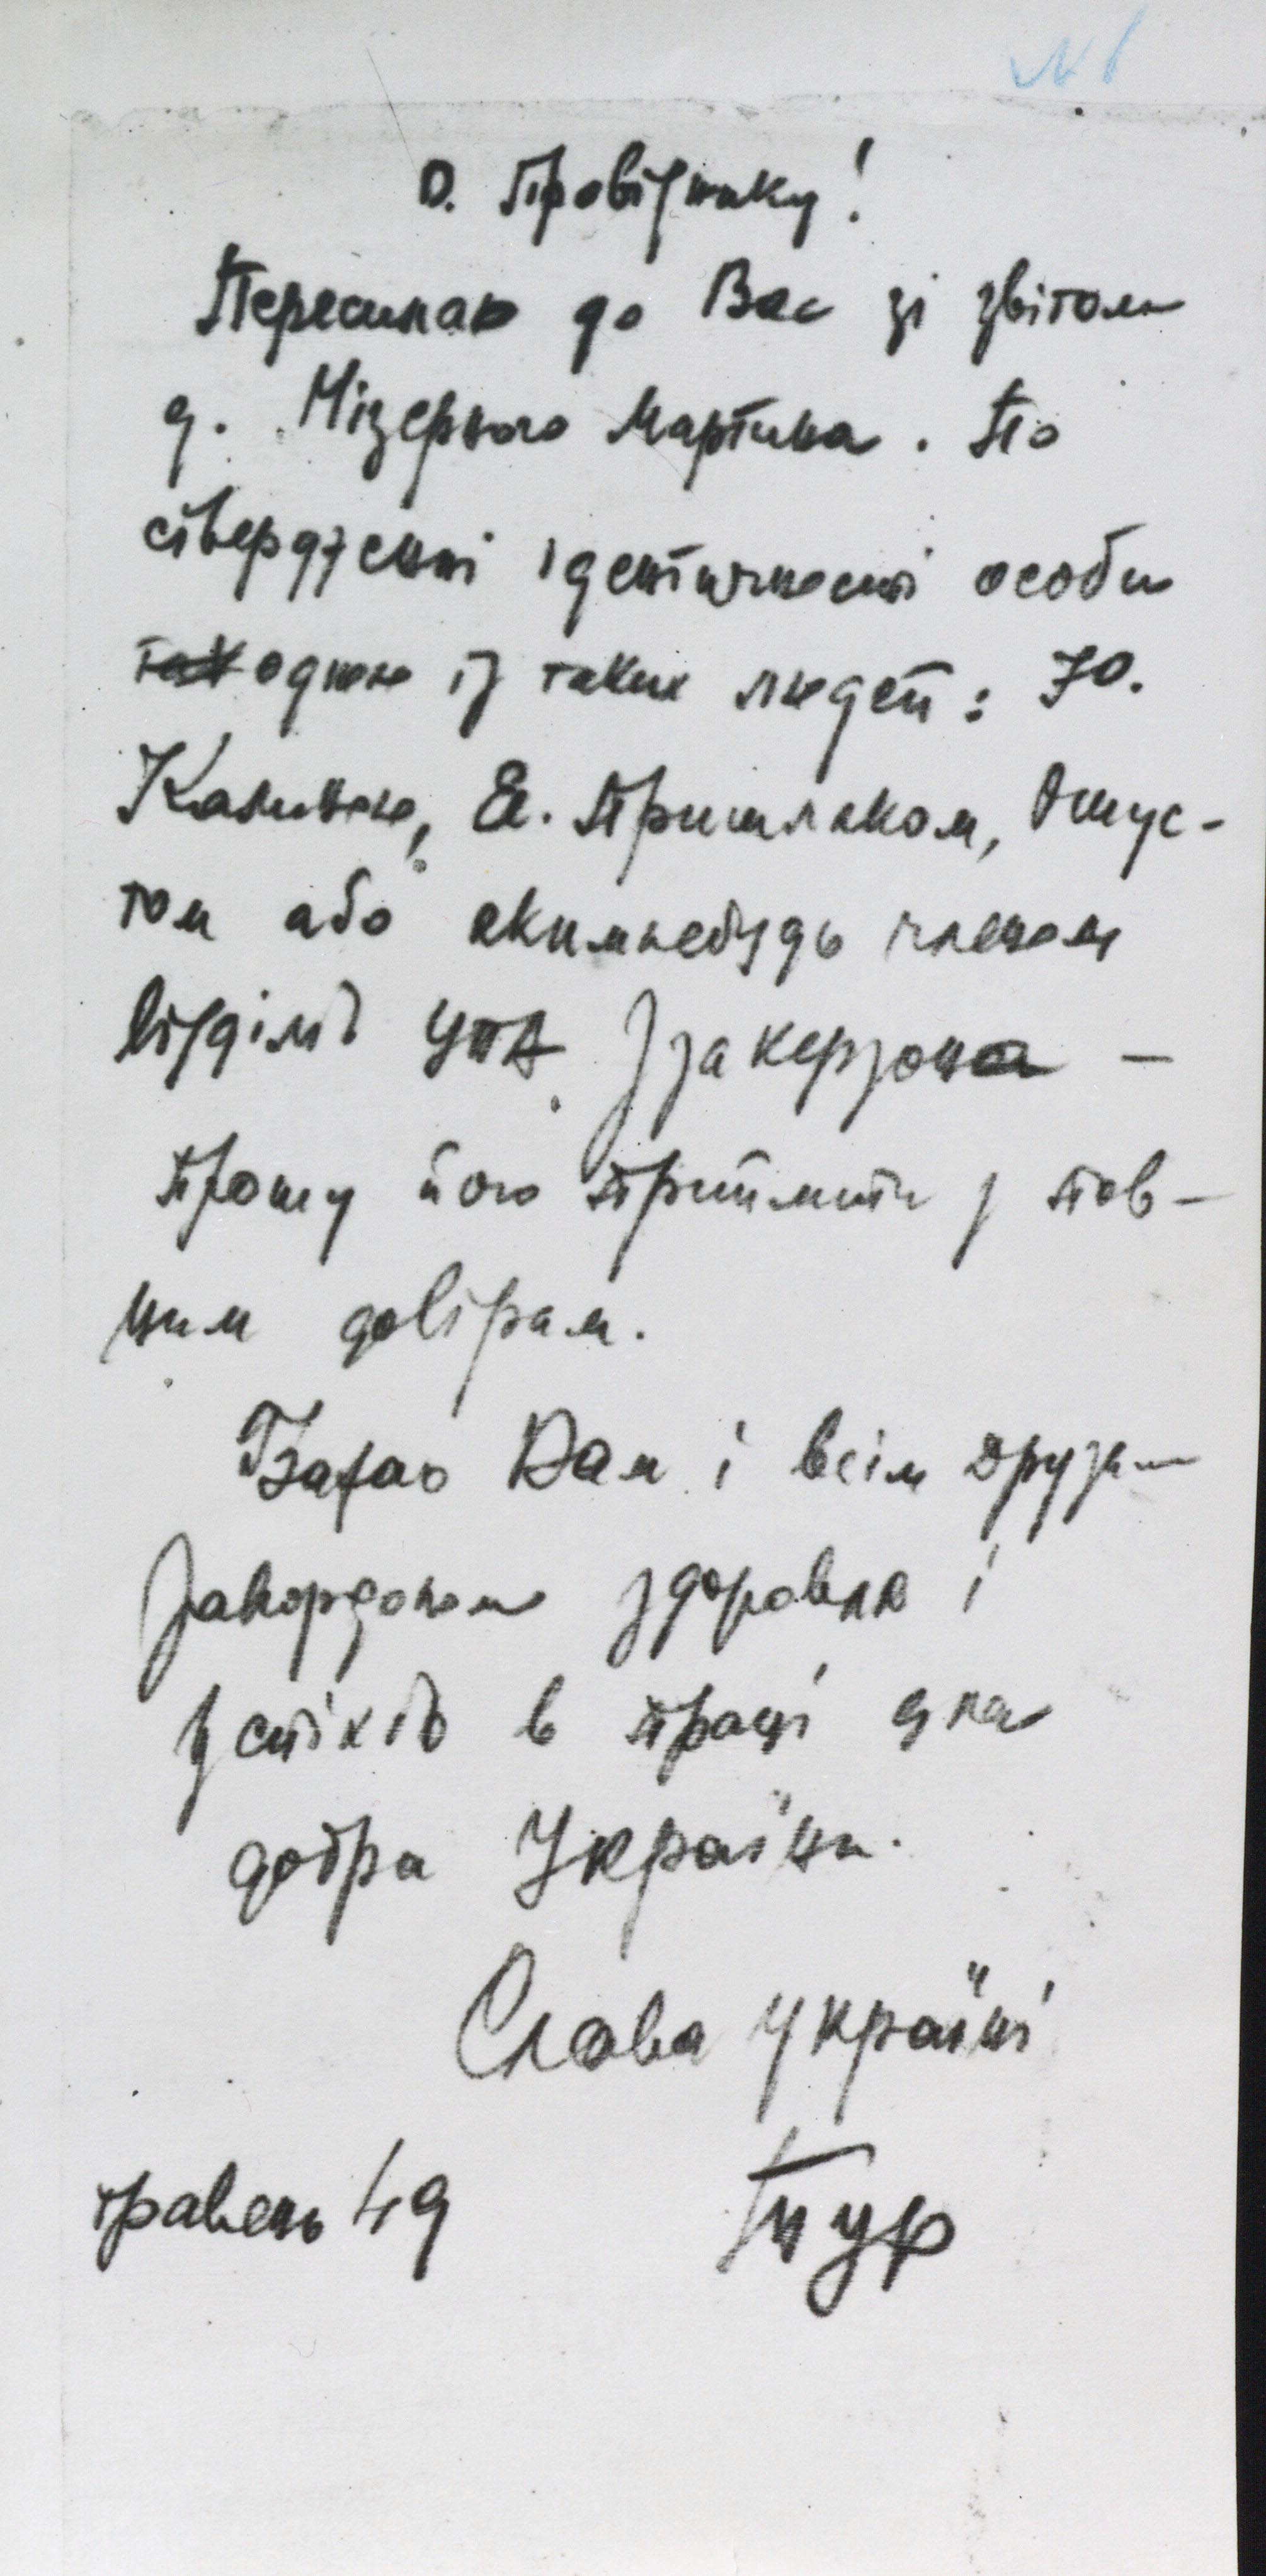 D. Провіднику!
Пересилаю до Вас зі звітом
д. Мізерного Мартина. По
ствердженні ідентичности особи
одною із таких людей:
Калиною, Пришляком, Шус-
том або якимнебудь членом
відділів УПА Ззакерзона —
Прошу його прийняти з пов-
ним довірям.
Бажаю Вам і всім друзям
Закордоном здоровля і
Успіхів в праці для
добра України.
Слава Україні
травень 49 Тур